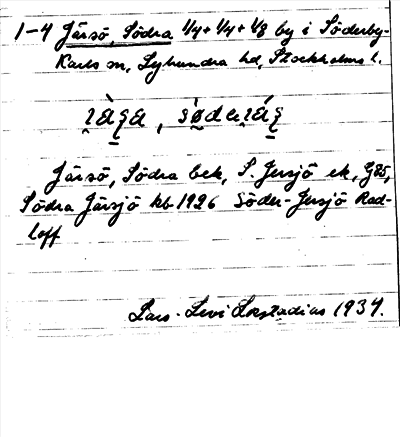 1-4 Järsö, Södra 1/4+1/4+1/8 by i Söderby-
Karls sn, Lyhundra hd, Stockholms l.
Järsö, Södra bek, S. Jersjö ek, G85,
Södra Järsjö kb 1926 Söder-Jersjö Rad-
loff
Lars-Levi Læstadius 1934.